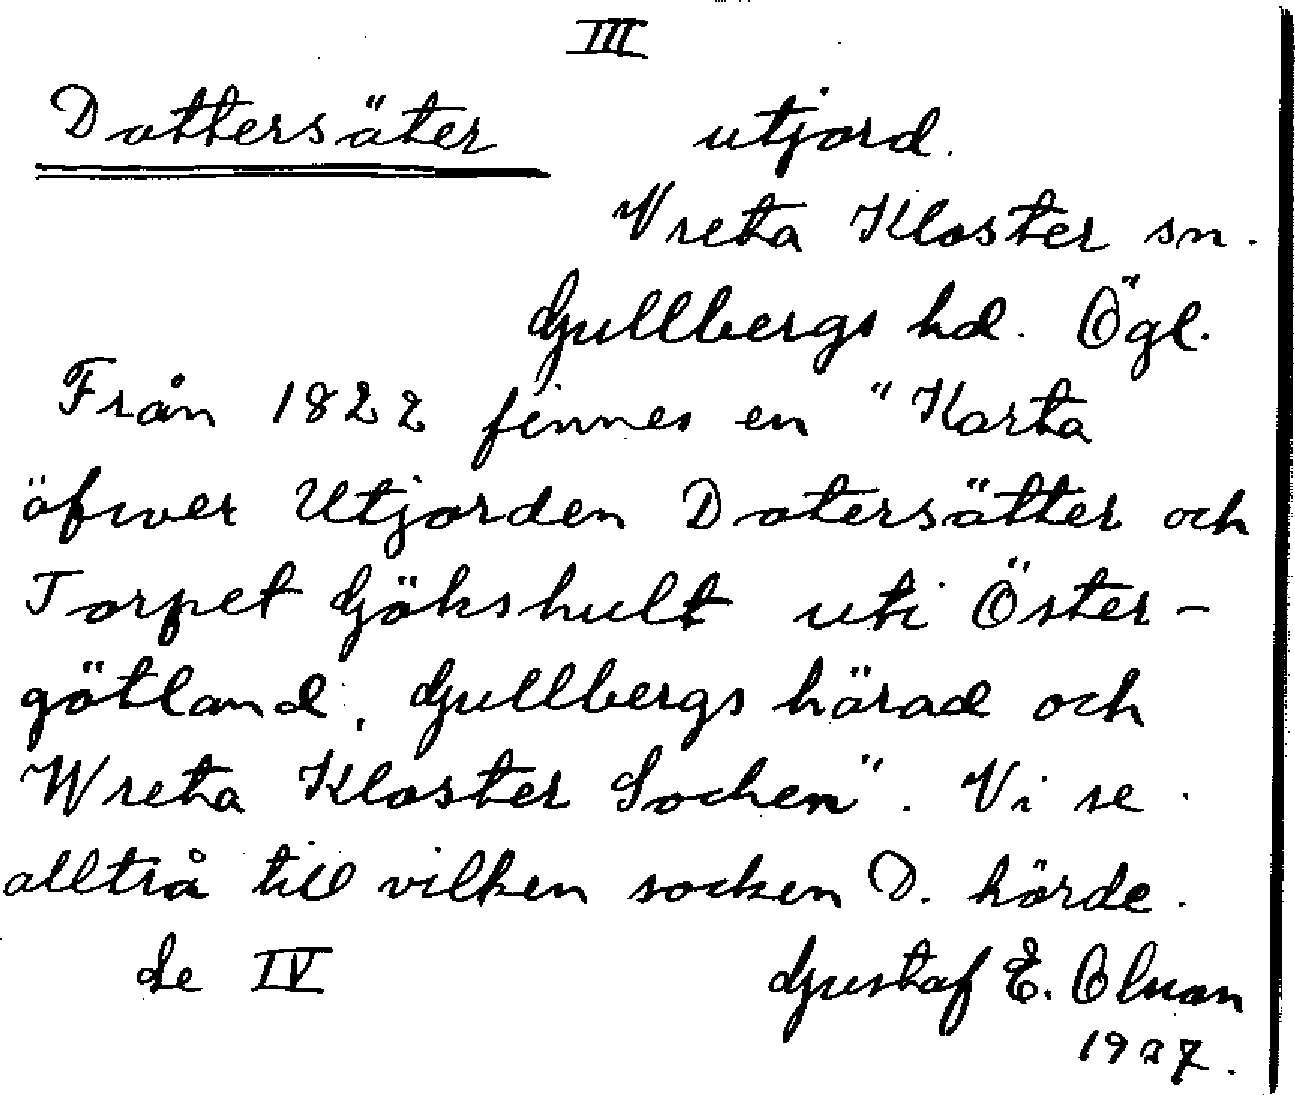 III
Dottersäter utjord.
Vreta Kloster sn.
Gullbergs hd. Ögl.
Från 1822 finnes en "Karta
öfwer Utjorden Dotersätter och
Torpet Gökshult uti Öster-
götland, Gullbergs härad och
Wreta Kloster Socken". Vi se
alltså till vilken socken D. hörde.
Se IV Gustaf E. Olsson
1927.